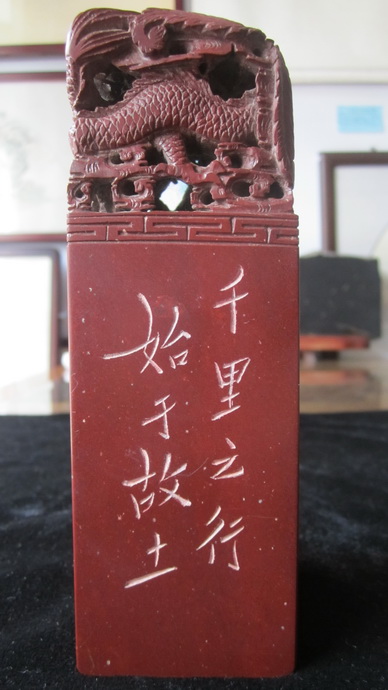 千里之行
始于故土